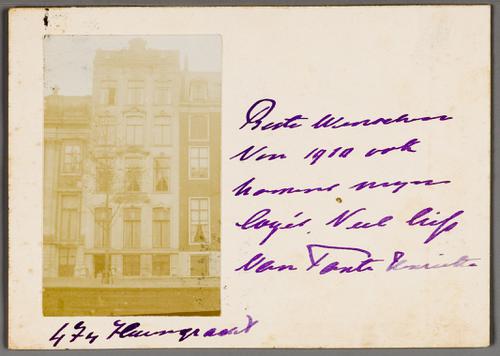 Beste Wenschen
Voor 1910 ook
namens mijn
logés. Veel liefs
Van Tante Henriette
474 Heerengracht